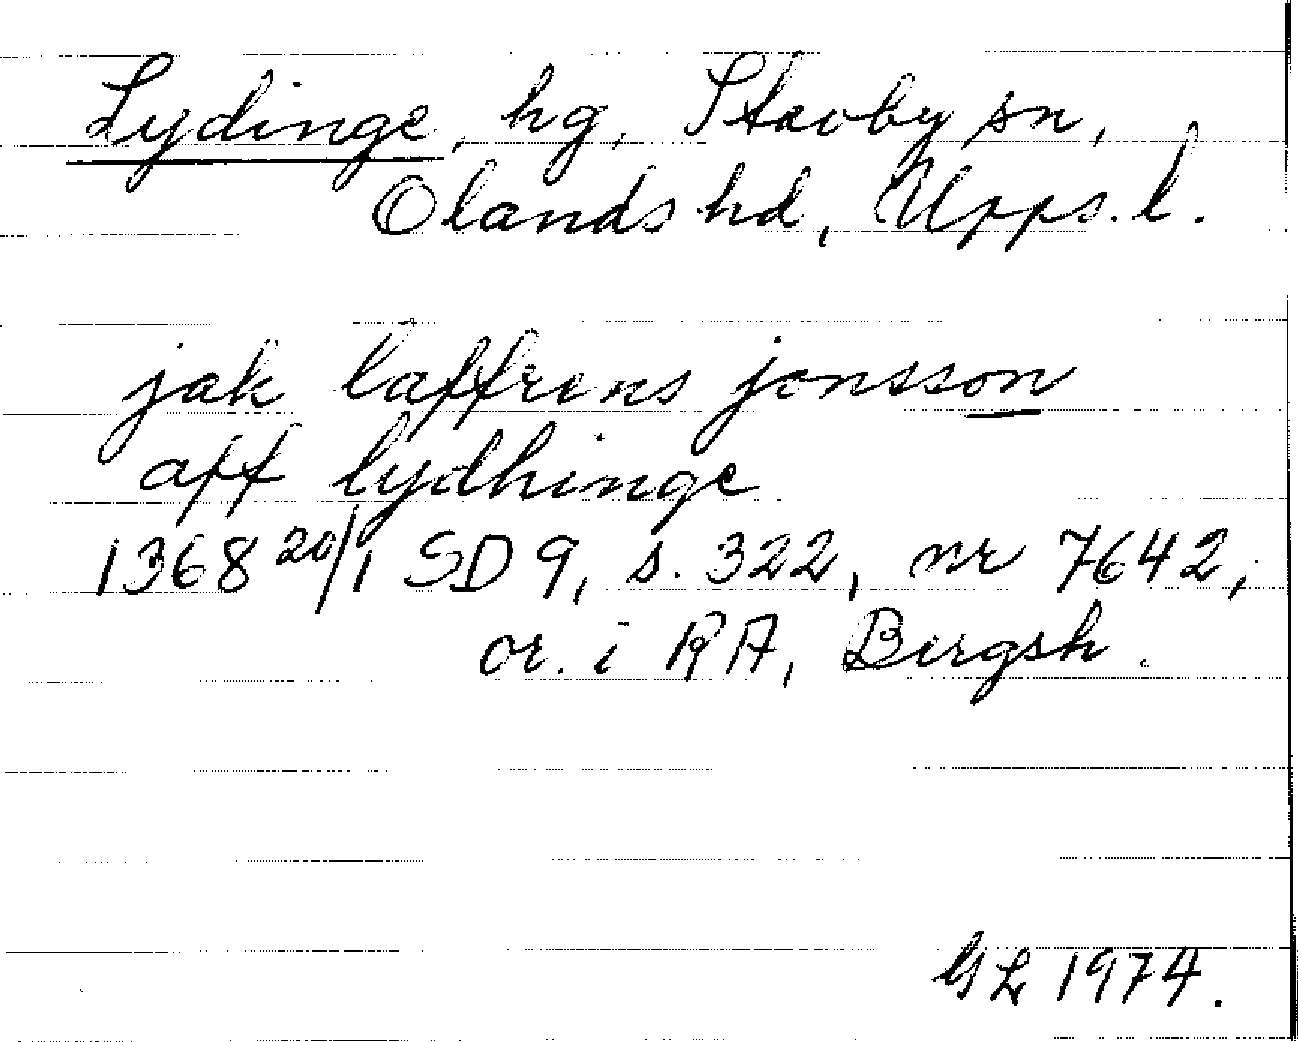 Lydinge, hg, Stavby sn,
Olands hd, Upps. l.
jak laffrens jonsson
aff lydhinge
1368 20/1 SD 9, s. 322, nr 7642,
or. i RA, Bergsh.
GL 1974.